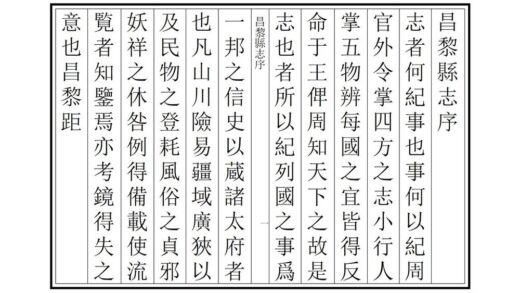 昌黎縣志序
志者何紀事也事何以紀周
官外令掌四方之志小行人
掌五物辨每國之宜皆得反
命于王俾周知天下之故是
志也者所以紀列國之事爲
昌黎縣志序
一
一邦之信史以蔵諸太府者
也凡山川險易疆域廣狹以
及民物之登耗風俗之貞邪
妖祥之休咎例得備載使流
覽者知鑒焉亦考鏡得失之
意也昌黎距